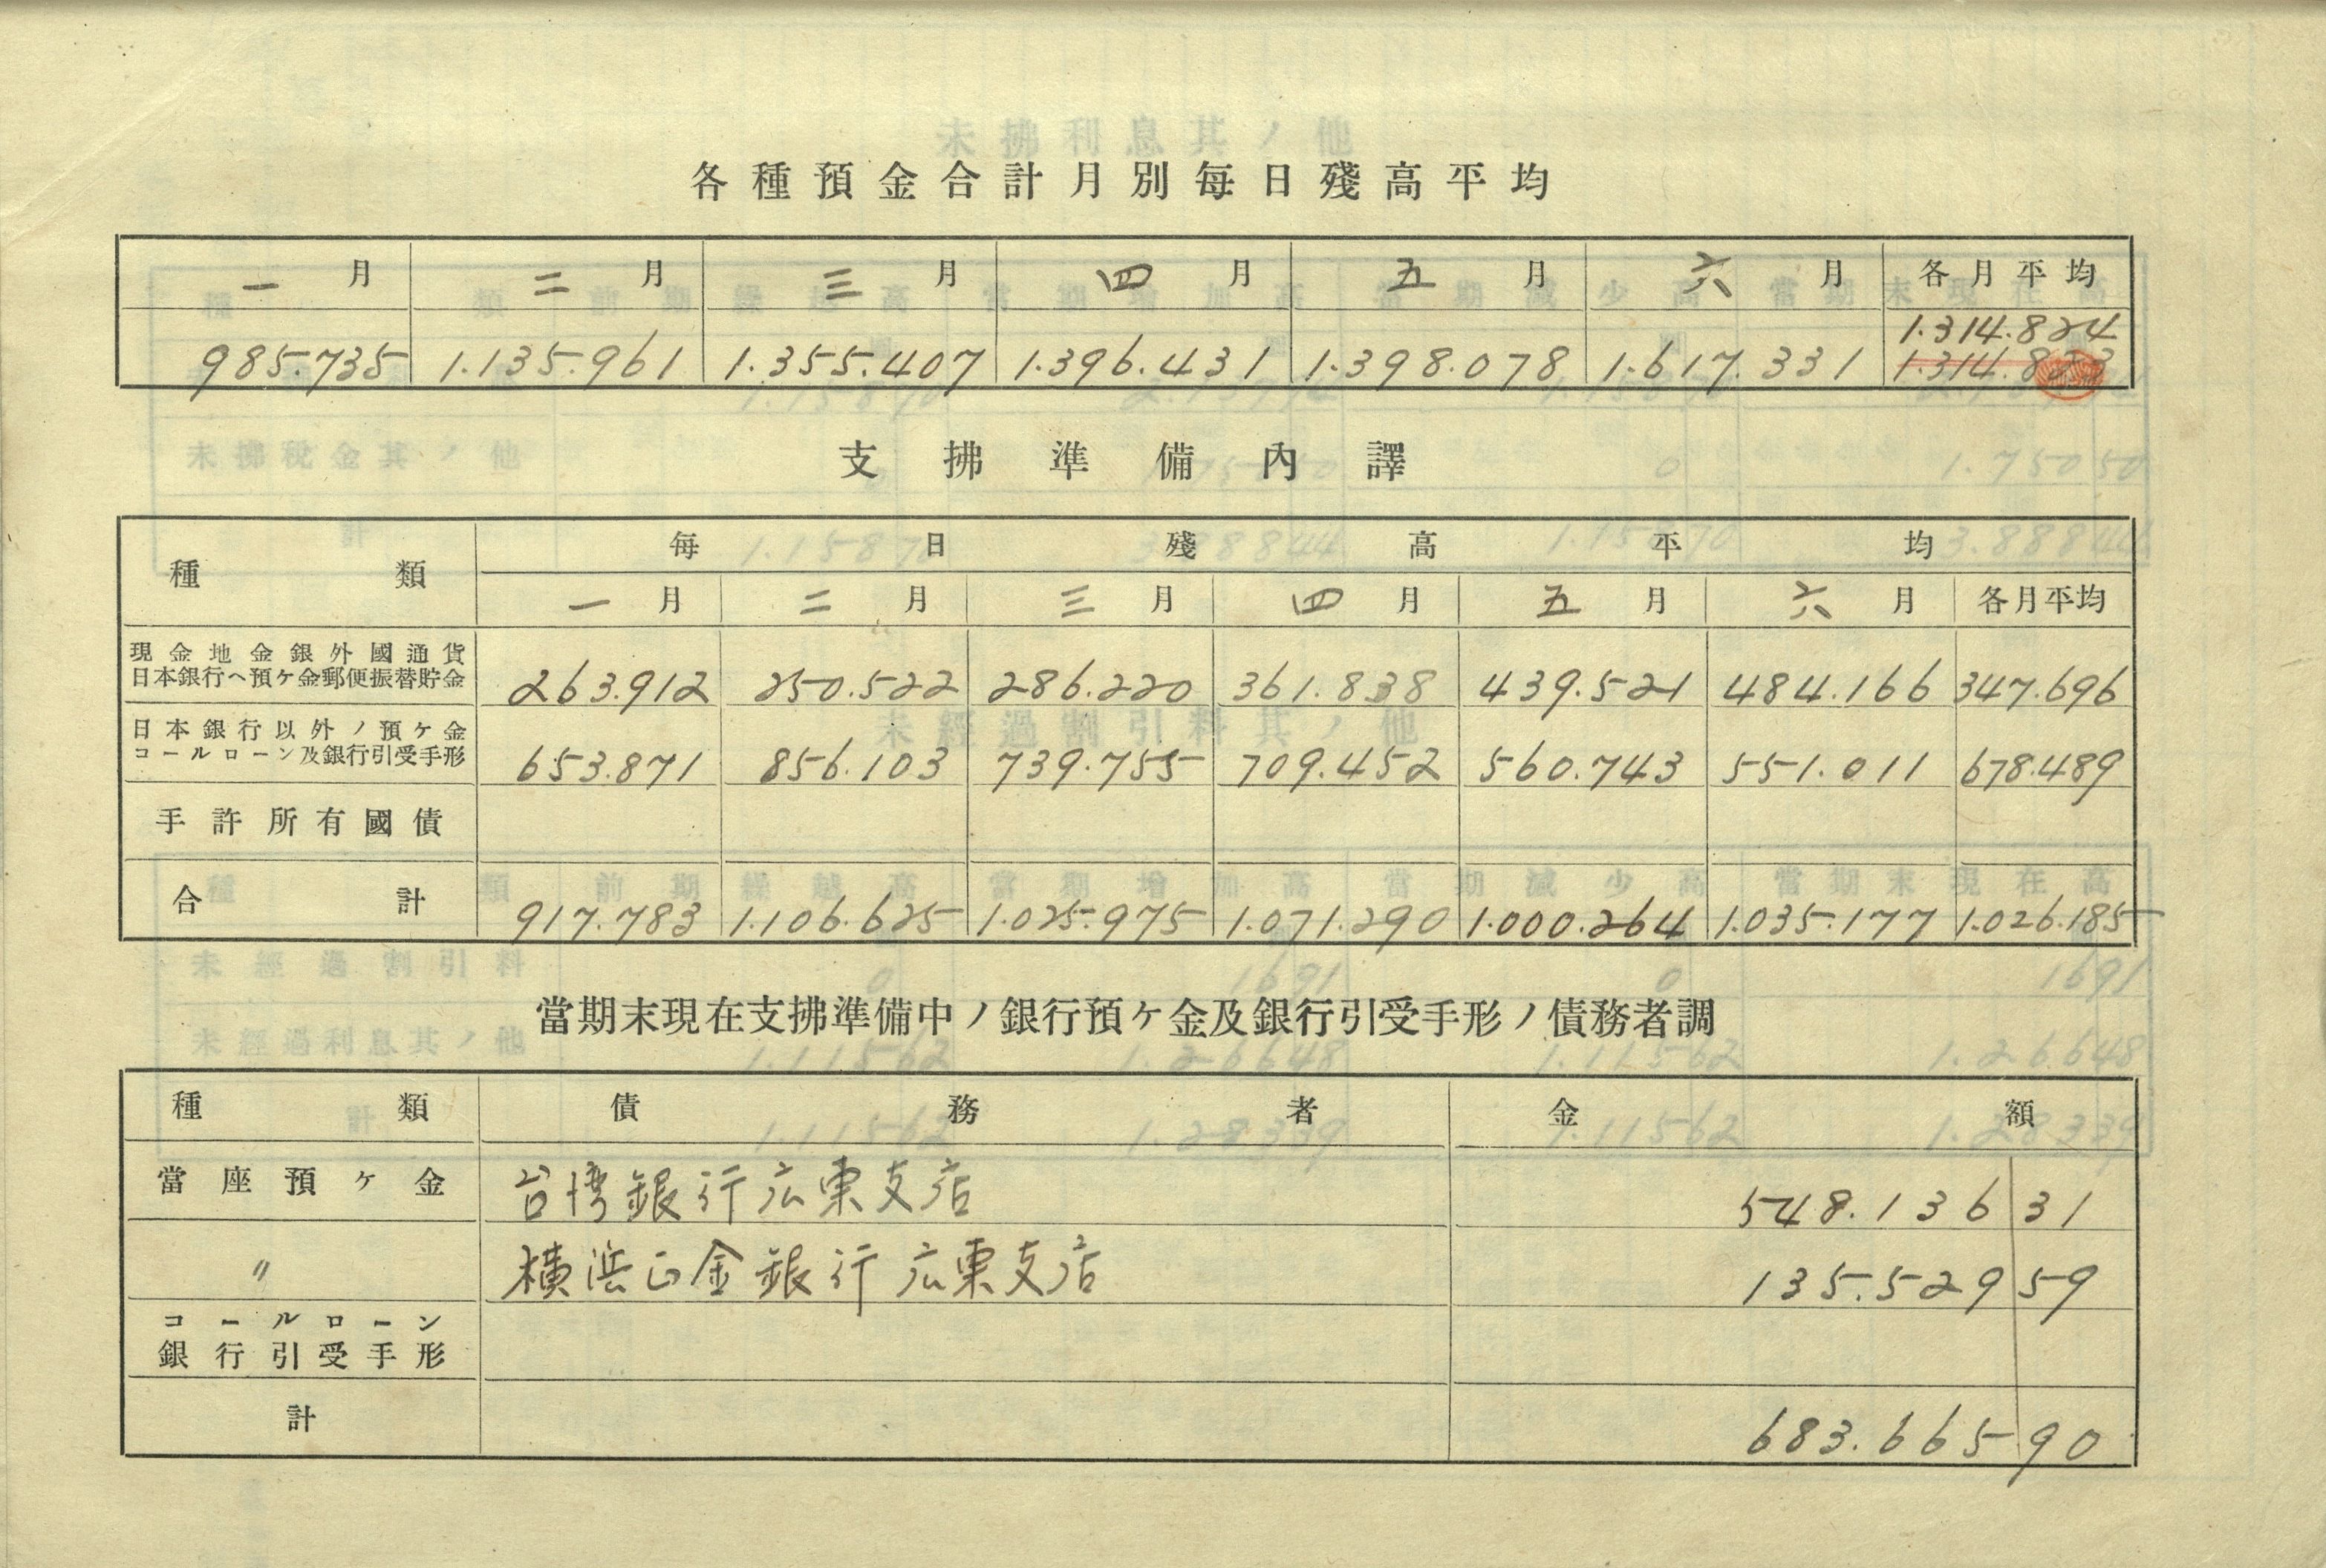 各種預金合計月別每日殘高平均
一月 二月 三月 四月 五月 六月 各月平均
1.314.824
985.735 1.135.961 1.355.407 1.396.431 1.398.078 1.617.331 1.314.823
支拂準備內譯
種類 每日殘高平均
一月 二月 三月 四月 五月 六月 各月平均
現金地金銀外國通貨
日本銀行ヘ預ケ金郵便振替貯金 263.912 250.522 286.220 361.838 439.521 484.166 347.696
日本銀行以外ノ預ケ金
コールローン及銀行引受手形 653.871 856.103 739.755 709.452 560.743 551.011 678.489
手許所有國債
合計 917.783 1.106.625 1.025.975 1.071.290 1.000.264 1.035.177 1.026.185
當期末現在支拂準備中ノ銀行預ケ金及銀行引受手形ノ債務者調
種類 債務者 金額
當座預ケ金 台湾銀行広東支店 548.136 31
〃 横浜正金銀行広東支店 135.529 59
コールローン
銀行引受手形
計 683.665 90